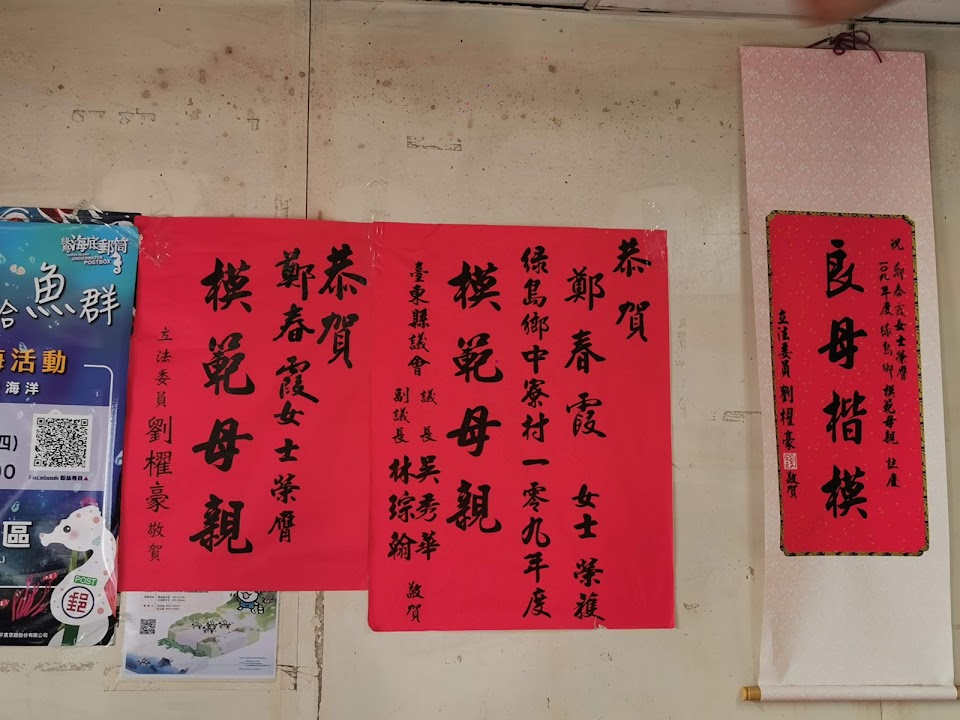 海底郵筒
UNDERWATER
POSTBOX
魚群
活動
海洋
Facebook 粉絲專頁
區
POST
郵
恭賀
鄭春霞女士榮膺
模範母親
立法委員 劉櫂豪 敬賀
恭賀
鄭春霞 女士榮獲
綠島鄉中寮村一零九年度
模範母親
臺東縣議會 議長 吳秀華
副議長 林琮翰 敬賀
祝
鄭春霞女士榮膺
一〇九年度綠島鄉模範母親 誌慶
良母楷模
立法委員 劉櫂豪 敬賀